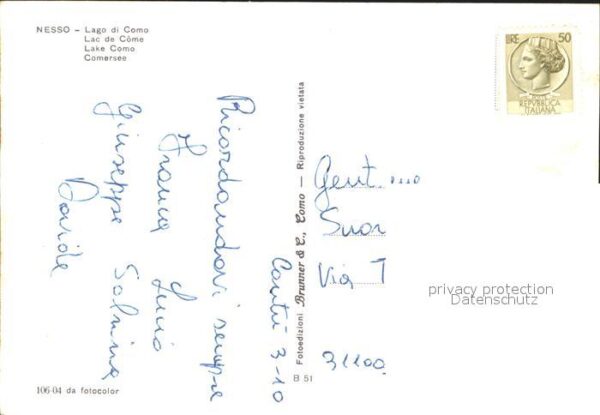 NESSO – Lago di Como
Lac de Côme
Lake Como
Comersee
LIRE 50
POSTE
REPVBBLICA
ITALIANA
Cantù 3-10
Ricordandovi sempre
Franca Lucio
Giuseppe Salvina
Davide
Fotoedizioni Brunner & C., Como – Riproduzione vietata
B 51
Gent.me
Suor
Via T
31100
privacy protection
Datenschutz
106-04 da fotocolor